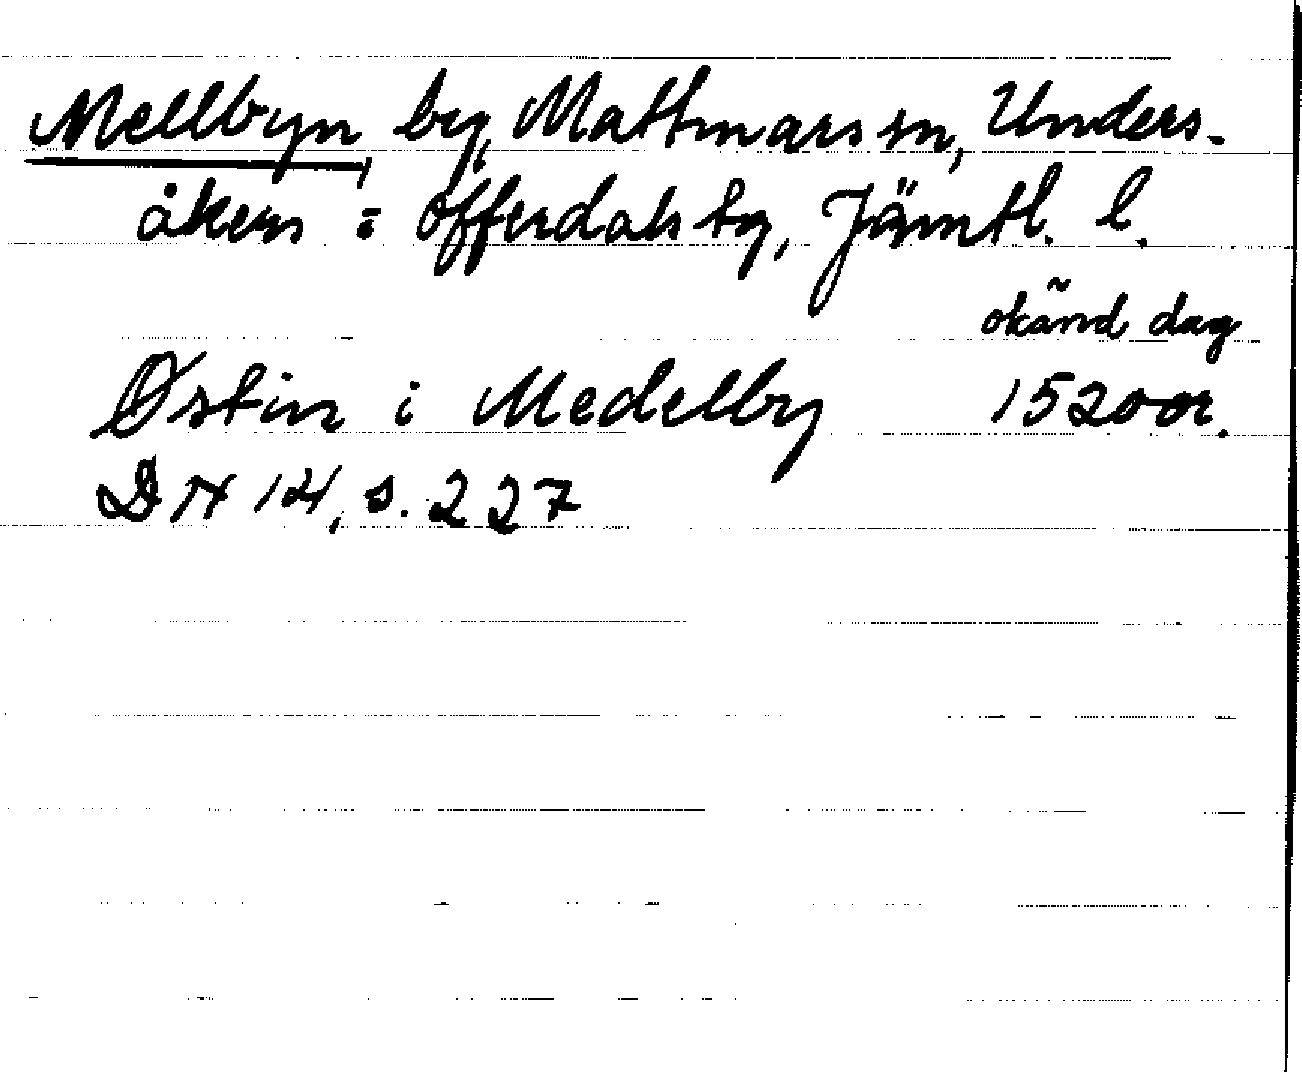 Mellbyn, by, Mattmars sn, Unders-
åkers o Offerdals tg, Jämtl. l.
okänd dag
Østin i Medelby 1520 or.
DN 14, s. 227